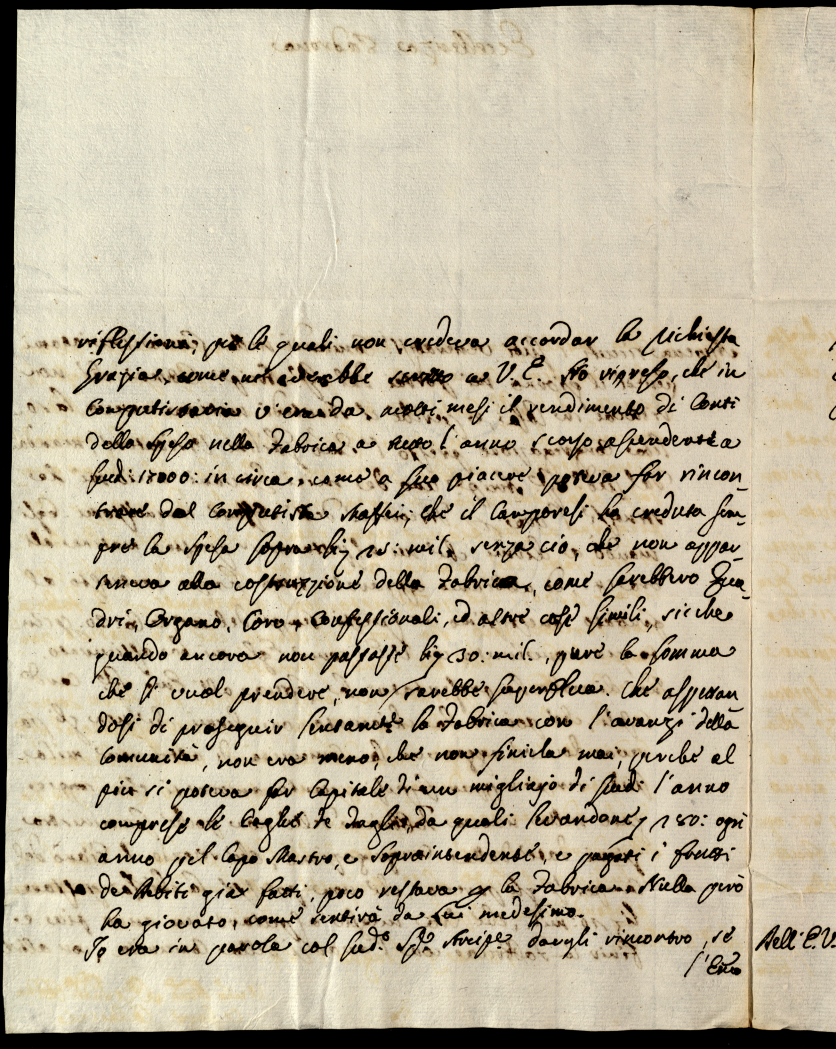 riflessioni, per le quali non credeva accordar la richiesta
Grazia, come ne avrebbe scritto a V. E. Ho ripreso, che in
Computisteria v'era da molti mesi il rendimento di Conti
della spesa nella Fabrica a tutto l'anno scorso ascendente a
scud: 18000: in circa, come a suo piacere poteva far rincon-
trare dal Computista Maffei; che il Camporesi ha creduta sem-
pre la spesa sopra li 25: mil. senza ciò, che non appar-
teneva alla costruzzione della Fabrica, come sarebbero Qua-
dri, Organo, Coro, Confessionali, ed altre cose simili, sicche
quando ancora non passasse li 30: mil., pure la somma
che si vuol prendere, non sarebbe superflua. Che aspettan-
dosi di proseguir lentamente la Fabrica con l'avanzi della
Comunità, non era meno, che non finirla mai, perche al
più si poteva far Capitale di un migliajo di scudi l'anno
comprese le Coglie, da quali levandone 180: ogni
anno pel Capo Mastro, e Sopraintendente, e pagati i frutti
de debiti già fatti, poco restava p la Fabrica. Nulla però
ha giovato, come sentirà da Lui medesimo.
Io era in parola col sud.o Sig. dargli rincontro, se
l'Emo
Dell'E.V.